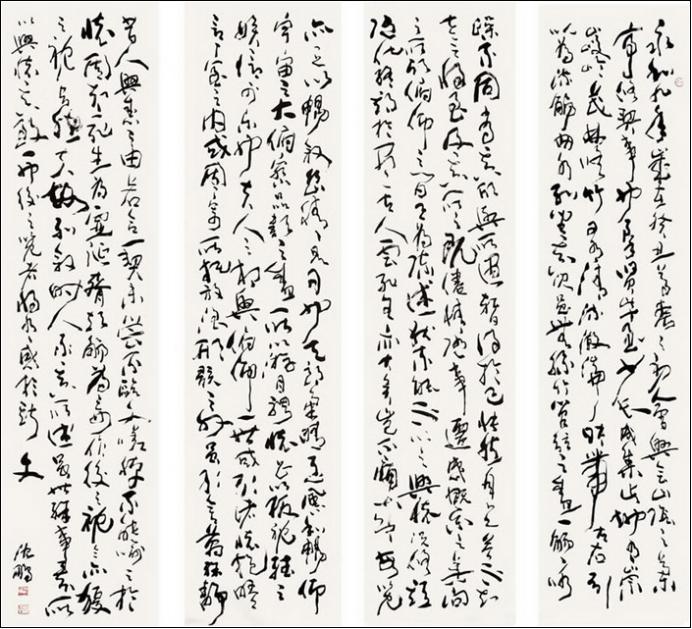 永和九年歲在癸丑暮春之初會於會稽山陰之蘭
亭修禊事也群賢畢至少長咸集此地有崇
山峻嶺茂林修竹又有清流激湍映帶左右引
以為流觴曲水列坐其次雖無絲竹管弦之盛一觴一詠
躁不同當其欣於所遇暫得於己快然自足曾不知
老之將至及其所之既倦情隨事遷感慨係之矣向
之所欣俯仰之間已為陳迹猶不能不以之興懷況修短
隨化終期於盡古人云死生亦大矣豈不痛哉每覽
亦足以暢敘幽情是日也天朗氣清惠風和暢仰
宇宙之大俯察品類之盛所以遊目騁懷足以極視聽之
娛信可樂也夫人之相與俯仰一世或取諸懷抱晤
言一室之內或因寄所託放浪形骸之外雖取舍萬殊靜
昔人興感之由若合一契未嘗不臨文嗟悼不能喻之於
懷固知一死生為虛誕齊彭殤為妄作後之視今亦猶
之視昔悲夫故列敘時人錄其所述雖世殊事異所
以興懷其致一也後之覽者亦將有感於斯文
沈鵬